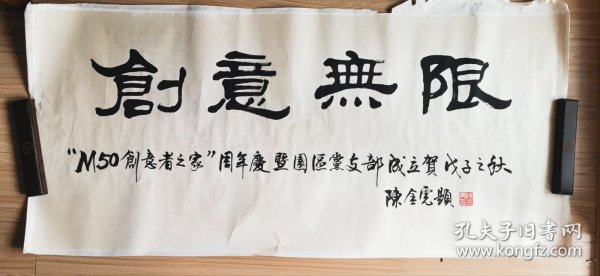 創意無限
“M50創意者之家”周年慶暨園區黨支部成立賀 戊子之秋
陳金寛題
孔夫子旧书网
www.kongfz.com